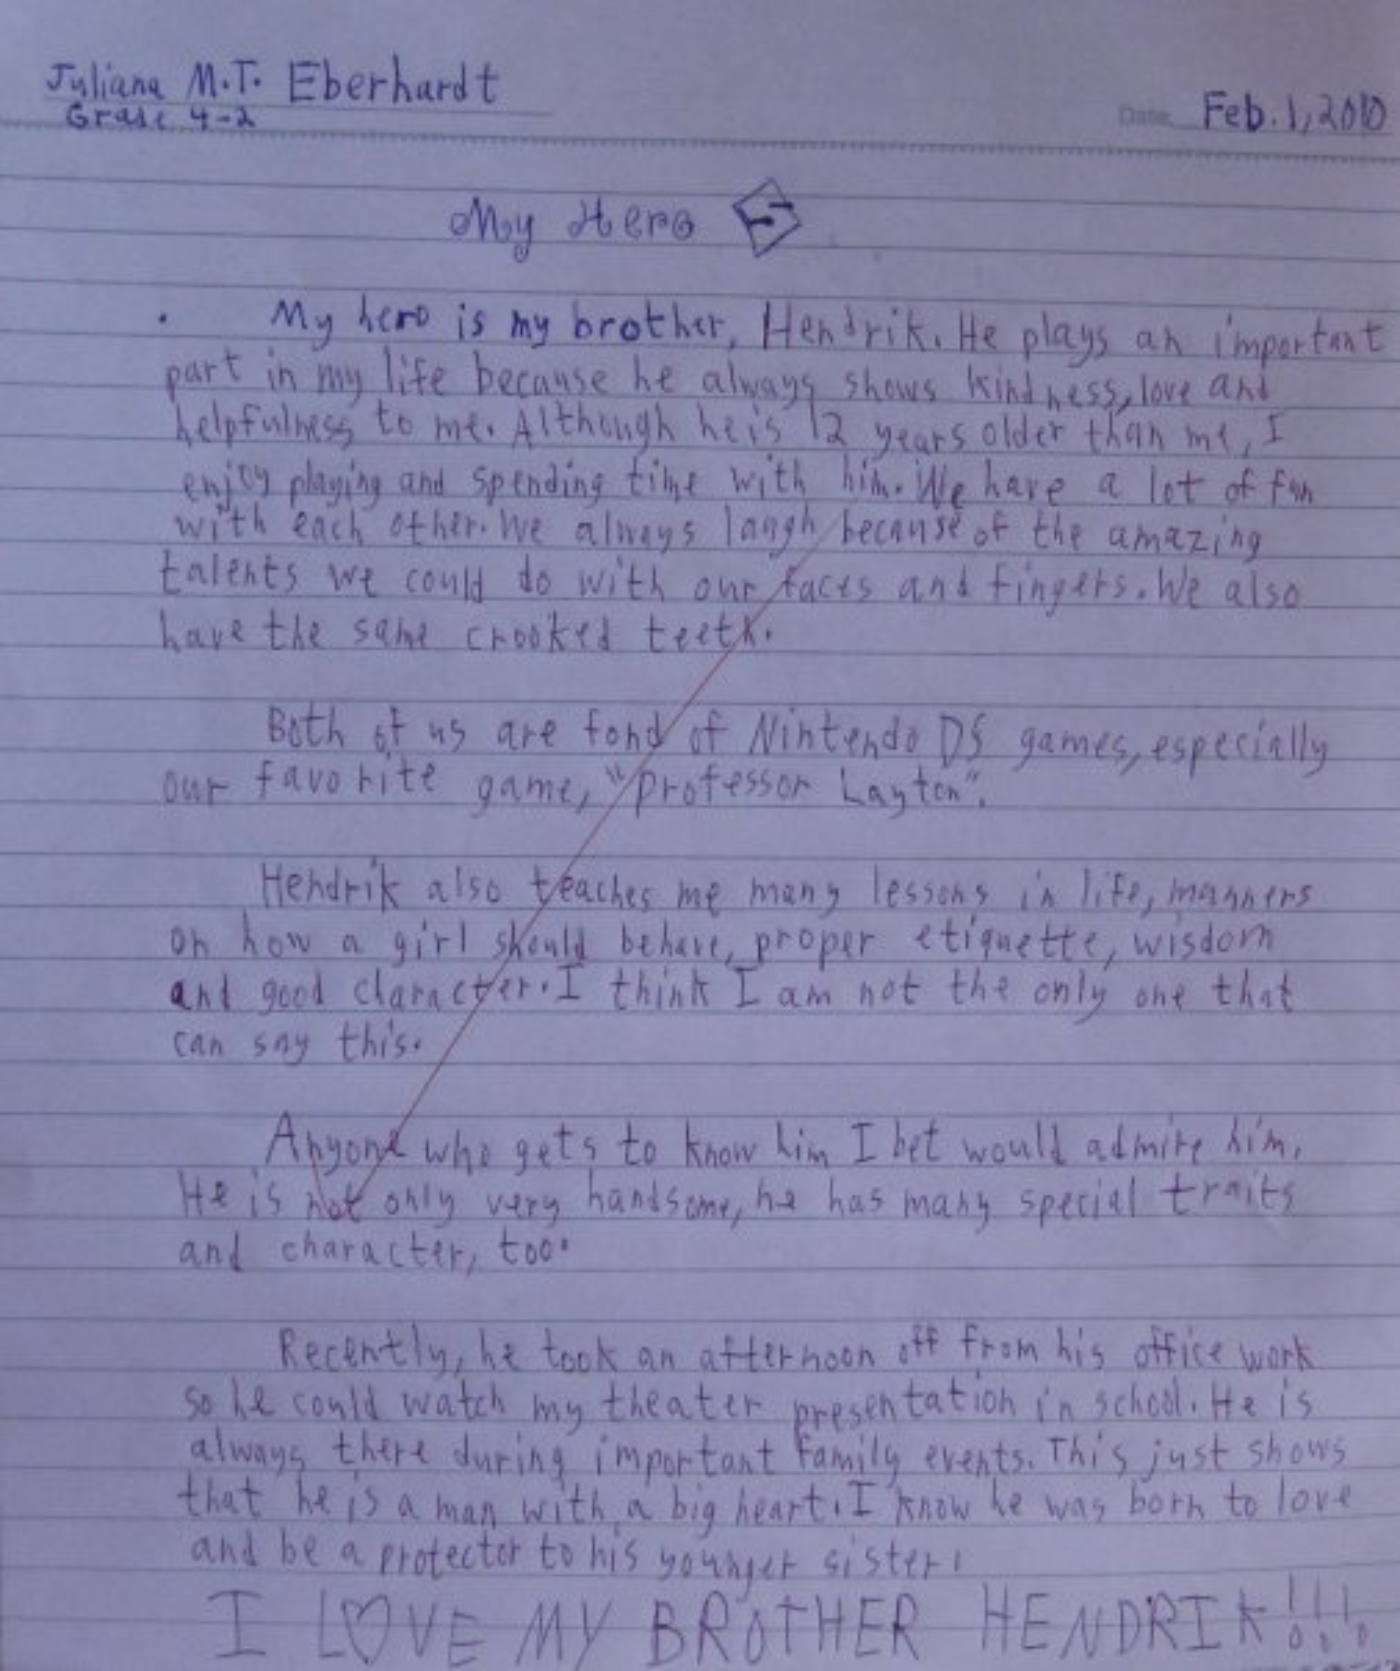 Juliana M.T. Eberhardt
Grade 4-2
Date Feb. 1, 2010
My Hero
My hero is my brother, Hendrik. He plays an important
part in my life because he always shows kindness, love and
helpfulness to me. Although he is 12 years older than me, I
enjoy playing and spending time with him. We have a lot of fun
with each other. We always laugh because of the amazing
talents we could do with our faces and fingers. We also
have the same crooked teeth.
Both of us are fond of Nintendo DS games, especially
our favorite game, "Professor Layton".
Hendrik also teaches me many lessons in life, manners
on how a girl should behave, proper etiquette, wisdom
and good character. I think I am not the only one that
can say this.
Anyone who gets to know him I bet would admire him.
He is not only very handsome, he has many special traits
and character, too.
Recently, he took an afternoon off from his office work
so he could watch my theater presentation in school. He is
always there during important family events. This just shows
that he is a man with a big heart. I know he was born to love
and be a protector to his younger sister.
I LOVE MY BROTHER HENDRIK!!!